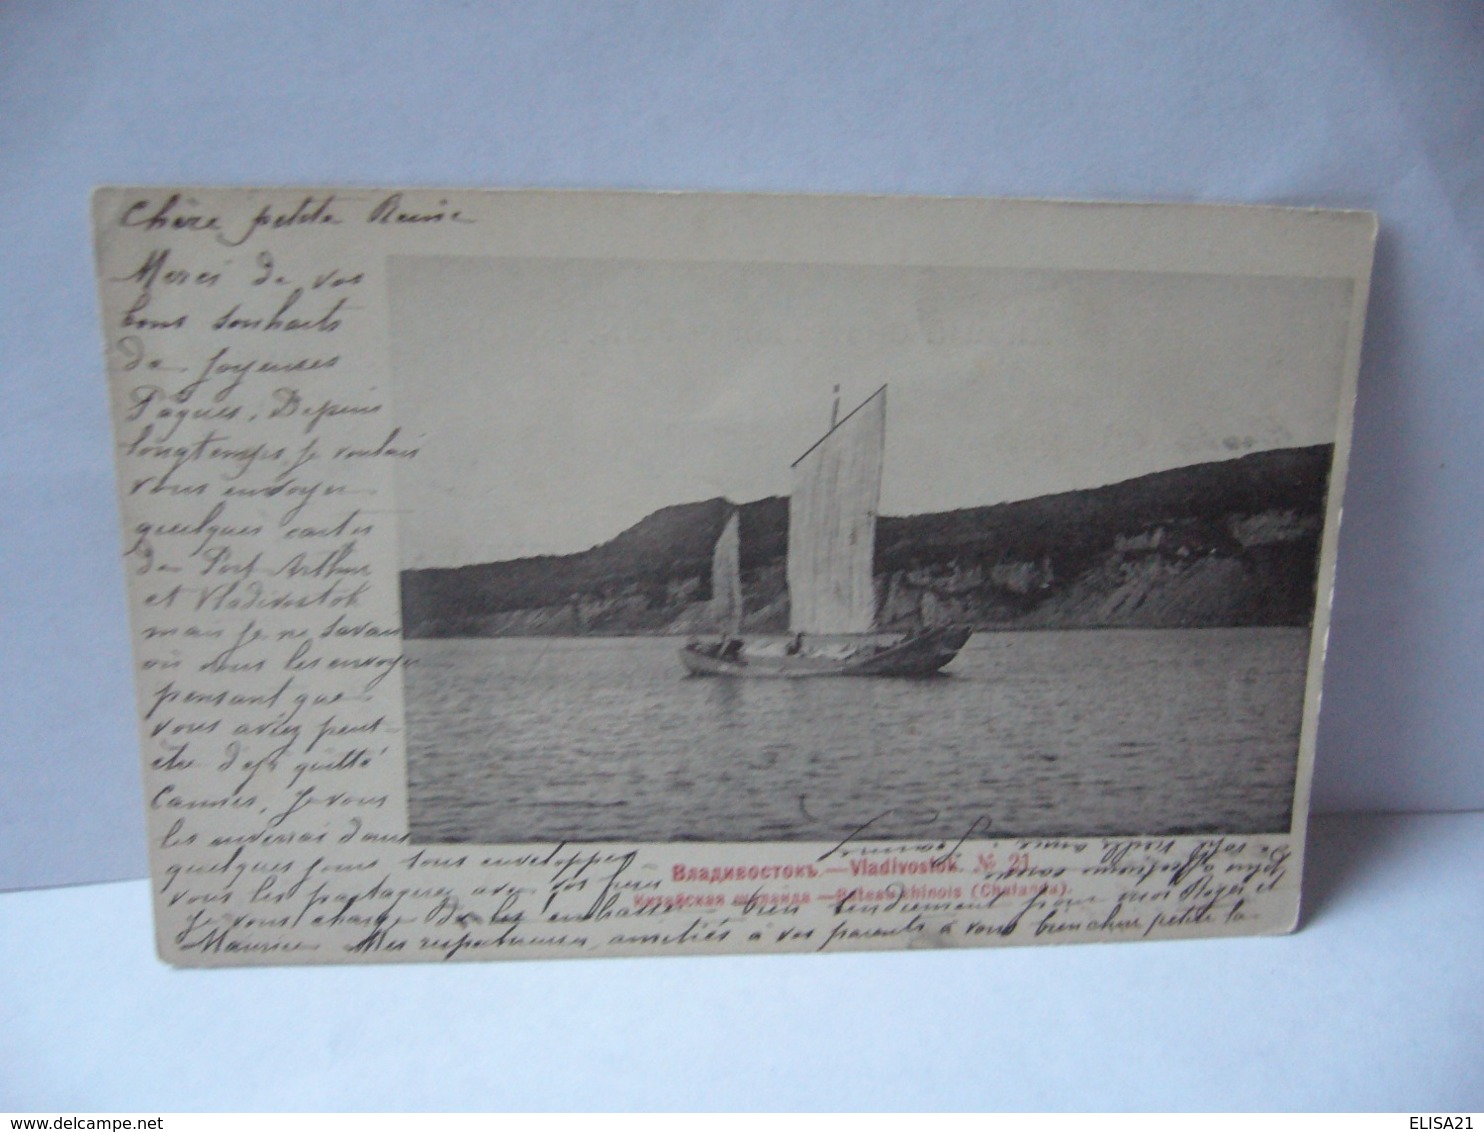 Chère petite Reine
Merci de vos
bons souhaits
de joyeuses
Pâques. Depuis
longtemps je voulais
vous envoyer
quelques cartes
de Port Arthur
et Vladivostok
mais je ne savais
où vous les envoyer
pensant que
vous aviez peut-
être déjà quitté
Cannes, je vous
les enverrai dans
quelques jours sous enveloppes
vous les partagerez avec vos frères
Je vous charge de les embrasser bien tendrement pour moi Roger et
Maurice Mes respectueuses amitiés à vos parents à vous bien chère petite la
de votre vieille amie
Jeanne
Владивостокъ.—Vladivostok. № 21.
Китайская шаланда —Bateau chinois (Chalanda).
ELISA21